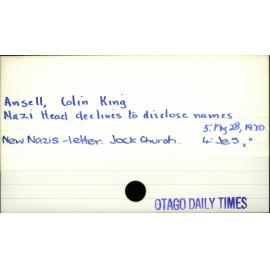 Ansell, Colin King
Nazi Head declines to disclose names
5: My 28, 1970
New Nazis - letter. Jock Church. 4: Je 5, "
OTAGO DAILY TIMES